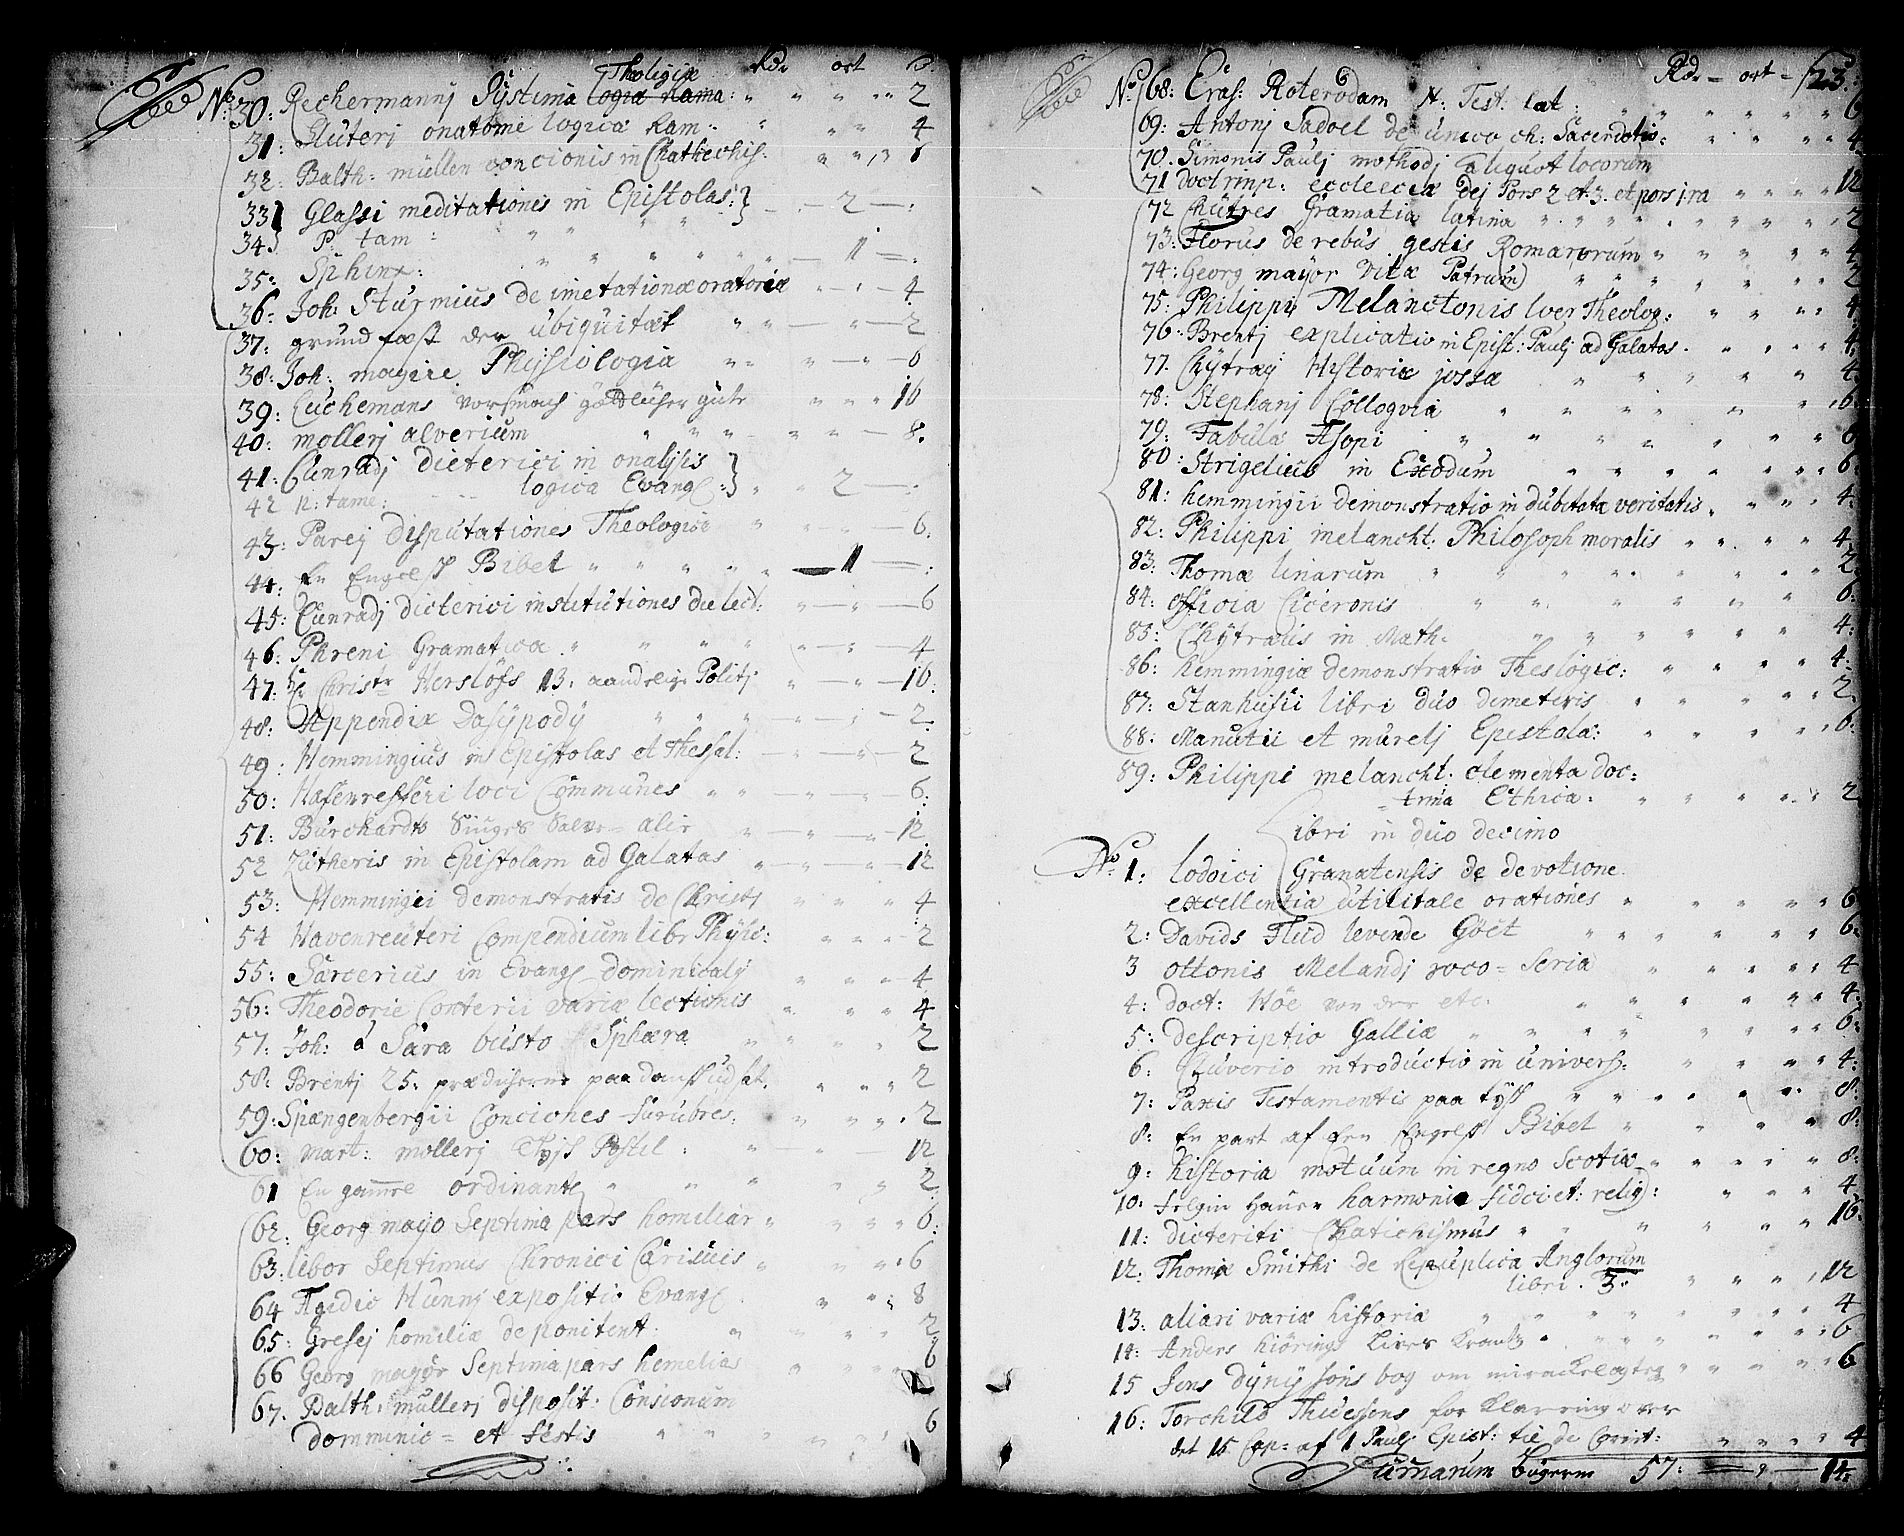 Rdr ort ẞ.
Theoligiæ
No 30: Keckermannj Systima logiæ nama: 2
31: Slüteri onatome logica Ram: 4
32: Balth: müllen concionis in Chathechis: 8
33 Glassi meditationis in Epistolas: 2 —:
34 P: tam:
35: Sphinx: 1 —:
36: Joh: Sturmius de imetationæ oratoriæ 4
37: grund fæst der übiquitæt 2
38: Joh: magiie Physiologia 6
39: Luchemans Vorsmach göttlicher güte 16
40: mollerj alverium 8.
41: Cunradj Dieterici in onalysis
logica Evang: 2 —:
42 P: tame:
43: Parej disputationes Theologiæ 6.
44: En Engelsk Bibel 1 —:
45: Cunradj dieterici institutiones dielect: 6
46: Phreni Gramatica 4
47: hr Christr Herslöfs 13: aandelige Politj 16.
48: Appendix Dasypody 2.
49: Hemmingius in Epistolas et Thessal: 2
50: Hafenrefferi loci Communes 6.
51: Burchardts Siuges Salve-alie 12
52 Lutheris in Epistolam ad Galatas 12
53: Hemmingii demonstratis de Christj 4
54 Havenreuteri Compendium libr Physic: 2
55: Sarcerius in Evang dominicaly 4
56: Theodorie Conterii variæ lectionis 4
57: Joh: á Sara busto Sphæra 2
58: Brentj 25: prædickener paa dansk udsat. 2
59: Spangenbergii Conciones funebres. 2
60: Mart: mollerj Tysk Postil: 12
61 En gamel ordinants 2
62. Georg mayo Septima pars homiliar 6.
63. libor Septimus Chronici Carisucis 6
64 Ægidio Hunnj expositio Evang 8
65: Gresej homiliæ de ponitent: 2
66 Georg mayor Septima pars hemelias 6
67. Balth: mullerj disposit: Consionum
domminic = et festis 6
Rdr - ort - ẞ 23.
No 68: Eras: Roterodam N: Test: lat: 6
69: Antonj Sadoel de unico ch: Sacerdotio. 4.
70. Simonis Paulj mothodj aliquot locorum
71 doctrinp: eccleciæ dej Pors 2 et 3. et pors 1:ra 12
72 Chutres Gramatia latina 2
73: Florus de rebus gestis Romanorum 4
74: Georg mayor Vitæ Patrum 2
75: Philippi Melanctonis loci Theolog: 4
76: Brentj explicatio in Epist: Paulj ad Galatas. 4.
77. Chytræj Historiæ josvæ 4.
78: Stephanj Colloqvia 6.
79. Fabula Æsopi 6
80: Strigelius in Exodum 6.
81: hemmingii demonstratio in dubitata veritatis. 4.
82: Philippi melancht: Philosoph moralis 4
83: Thomæ linarum 2.
84: officia Ciceronis 6.
85: Chytralis in Math. 4.
86: hemmingiæ demonstratio Theologic: 4.
87: Stanhusii libri duo demeteris 2.
88: Manutii et muretj Epistola: 6.
89: Philippi melancht: elementa doc:
trina Ethica: 2
Libri in duo decimo
No 1: Lodoici Granatensis de devotione
excellentia utilitate orationes 6
2: Davids Flud levende Göet 6.
3 ottonis Melandj joco = Seria 4
4: doct: Höe von der etc: 4.
5: descriptio Galliæ 6.
6: Cluverio introductio in univers: 4.
7: Paxis Testamentis paa tysk 8.
8: En part af Een Engelsk Bibel 8.
9: historia motuum in regno Scotiæ 8.
10: Felgin Hauen harmonia fidei et: relig: 4
11: dieteriti Chatichismus 16.
12: Thomæ Smithi de Repuplica Anglorum
libri. 3. 12
13: aliari variæ historia 4
14: Anders hiörings Liver Krantz 6
15 Jens dynysöns bog om mirackelagtig 6
16: Torchild Thuesens forklarring over
det 15 Cap: af 1 Paulj Epist: til de Corint: 4
Sumarum bögerne 57: — — 14: